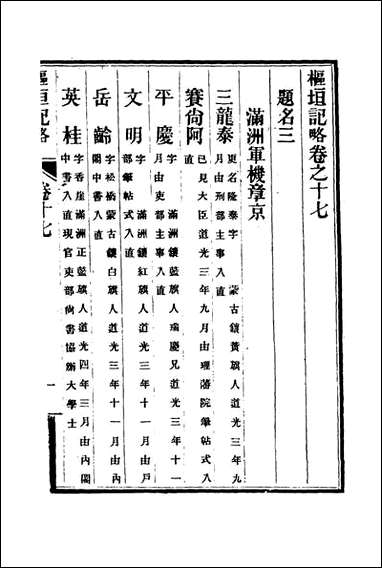 樞垣記略卷之十七
題名三
滿洲軍機章京
三龍泰 更名隆泰字 蒙古鑲黃旗人道光三年九
月由刑部主事入直
賽尚阿 已見大臣道光三年九月由理藩院筆帖式入
直
平慶 字 滿洲鑲藍旗人瑞慶兄道光三年十一
月由吏部主事入直
文明 字 滿洲鑲紅旗人道光三年十一月由戶
部筆帖式入直
岳齡 字松橋蒙古鑲白旗人道光三年十一月由內
閣中書入直
英桂 字香崖滿洲正藍旗人道光四年三月由內閣
中書入直現官吏部尚書協辦大學士
樞垣記略 卷十七 一